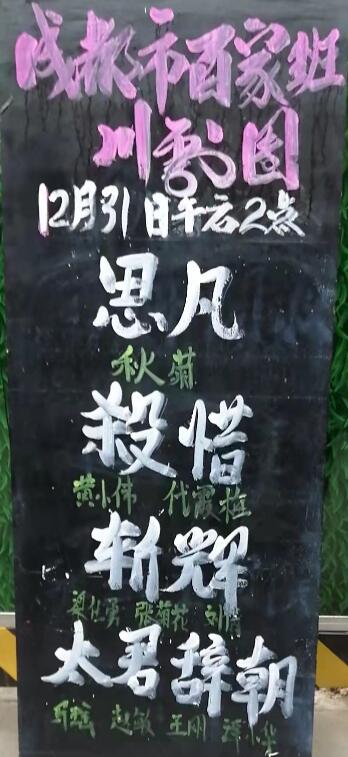 成都市百家班
川剧团
12月31日午后2点
思凡
秋菊
殺惜
黄小伟 代霞梅
斩辉
张菊花 刘
太君辞朝
赵敏 王刚 谭小华